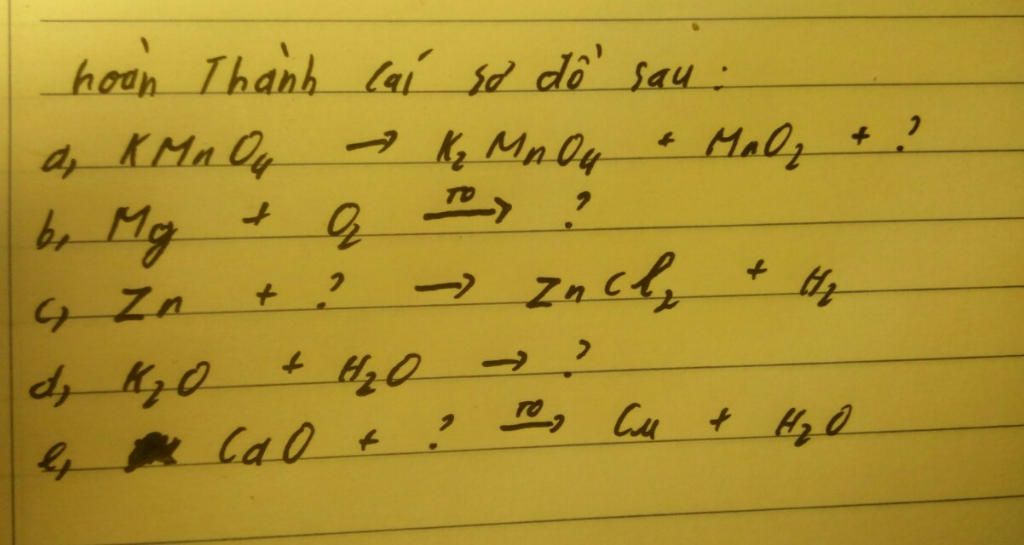 hoàn Thành Cái sơ đồ sau :
a, KMnO₄ → K₂MnO₄ + MnO₂ + ?
b, Mg + O₂ →(TO) ?
c, Zn + ? → ZnCl₂ + H₂
d, K₂O + H₂O → ?
e, CaO + ? →(TO) Cu + H₂O